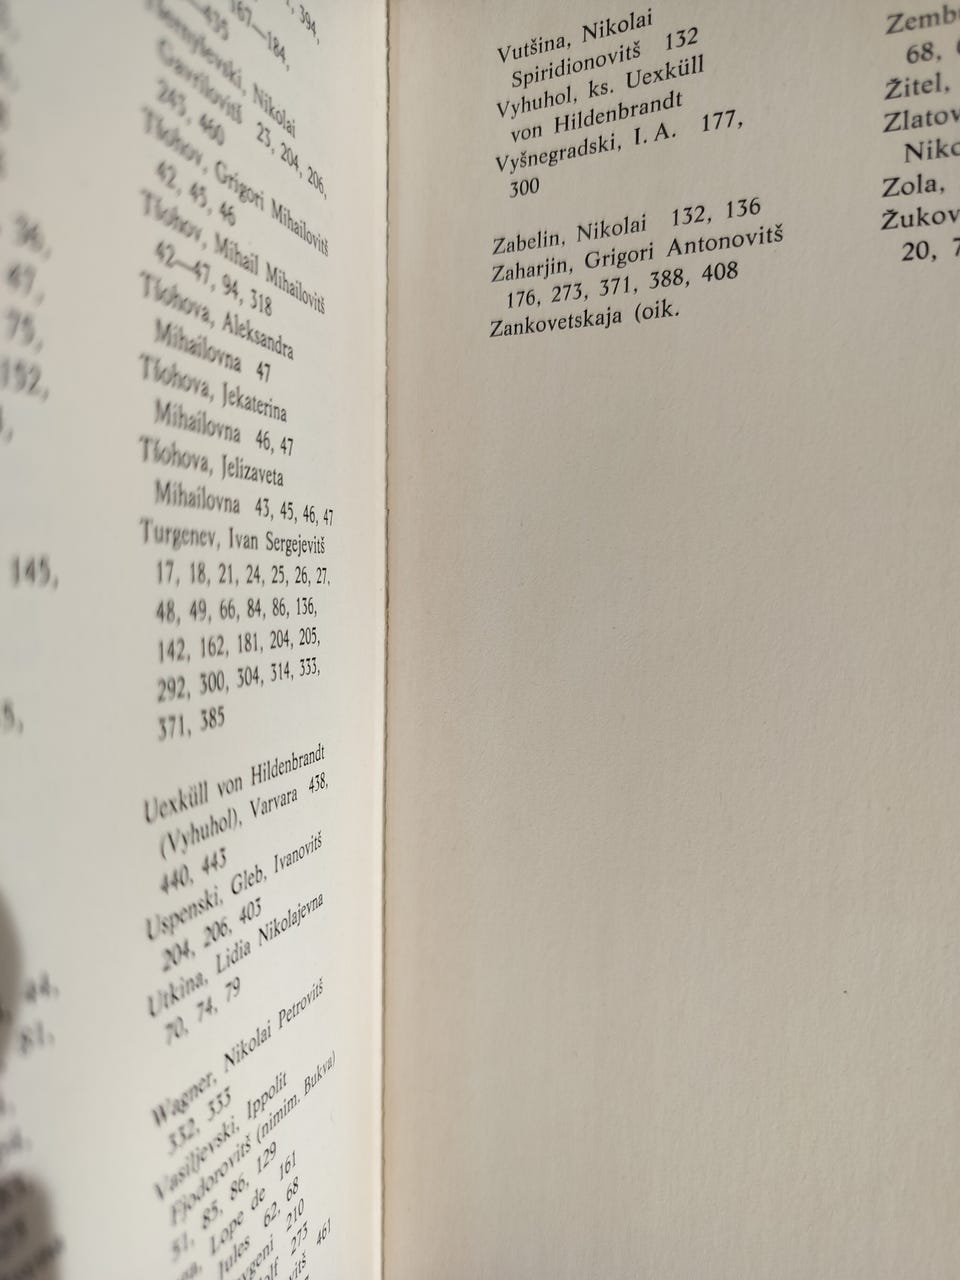 394,
167—184,
—435
Nikolai
Gavrilovitš 23, 204, 206,
243, 460
Tšohov, Grigori Mihailovitš
42, 45, 46
Tšohov, Mihail Mihailovitš
42—47, 94, 318
Tšohova, Aleksandra
Mihailovna 47
Tšohova, Jekaterina
Mihailovna 46, 47
Tšohova, Jelizaveta
Mihailovna 43, 45, 46, 47
Turgenev, Ivan Sergejevitš
17, 18, 21, 24, 25, 26, 27,
48, 49, 66, 84, 86, 136,
142, 162, 181, 204, 205,
292, 300, 304, 314, 333,
371, 385
Uexküll von Hildenbrandt
(Vyhuhol), Varvara 438,
440, 443
Uspenski, Gleb, Ivanovitš
204, 206, 403
Utkina, Lidia Nikolajevna
70, 74, 79
Wagner, Nikolai Petrovitš
332, 333
Vasiljevski, Ippolit
Fjodorovitš (nimim. Bukva)
51, 85, 86, 129
Lope de 161
Jules 62, 68
210
273
461
36,
47,
75,
192,
145,
44,
81,
Vutšina, Nikolai
Spiridionovitš 132
Vyhuhol, ks. Uexküll
von Hildenbrandt
Vyšnegradski, I. A. 177,
300
Zabelin, Nikolai 132, 136
Zaharjin, Grigori Antonovitš
176, 273, 371, 388, 408
Zankovetskaja (oik.
Zemb
68,
Žitel,
Zlatov
Niko
Zola,
Žukov
20, 7